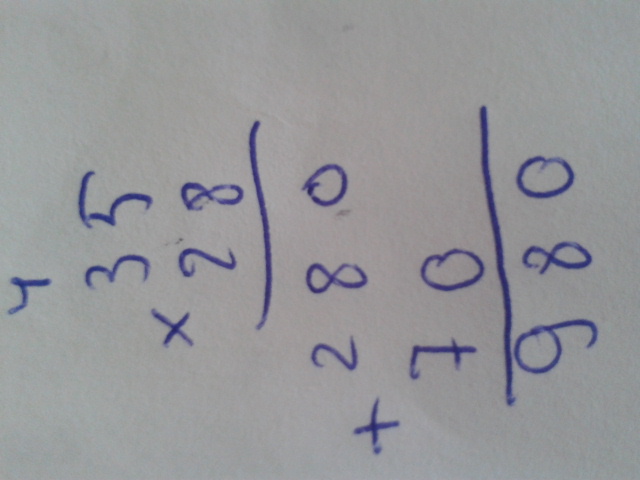 4
35
× 28
280
+ 70
980